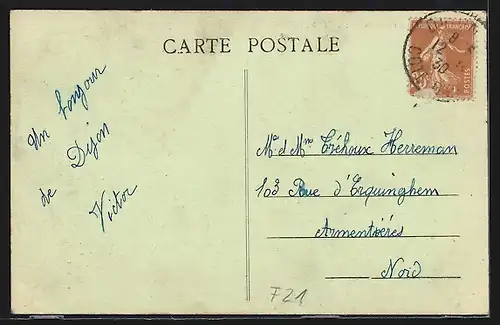 CARTE POSTALE
Un bonjour
de Dijon
Victor
Mr et Mme Tréhoux Herreman
103 Rue d'Erquinghem
Armentières
Nord
POSTES
8
12
30
F21